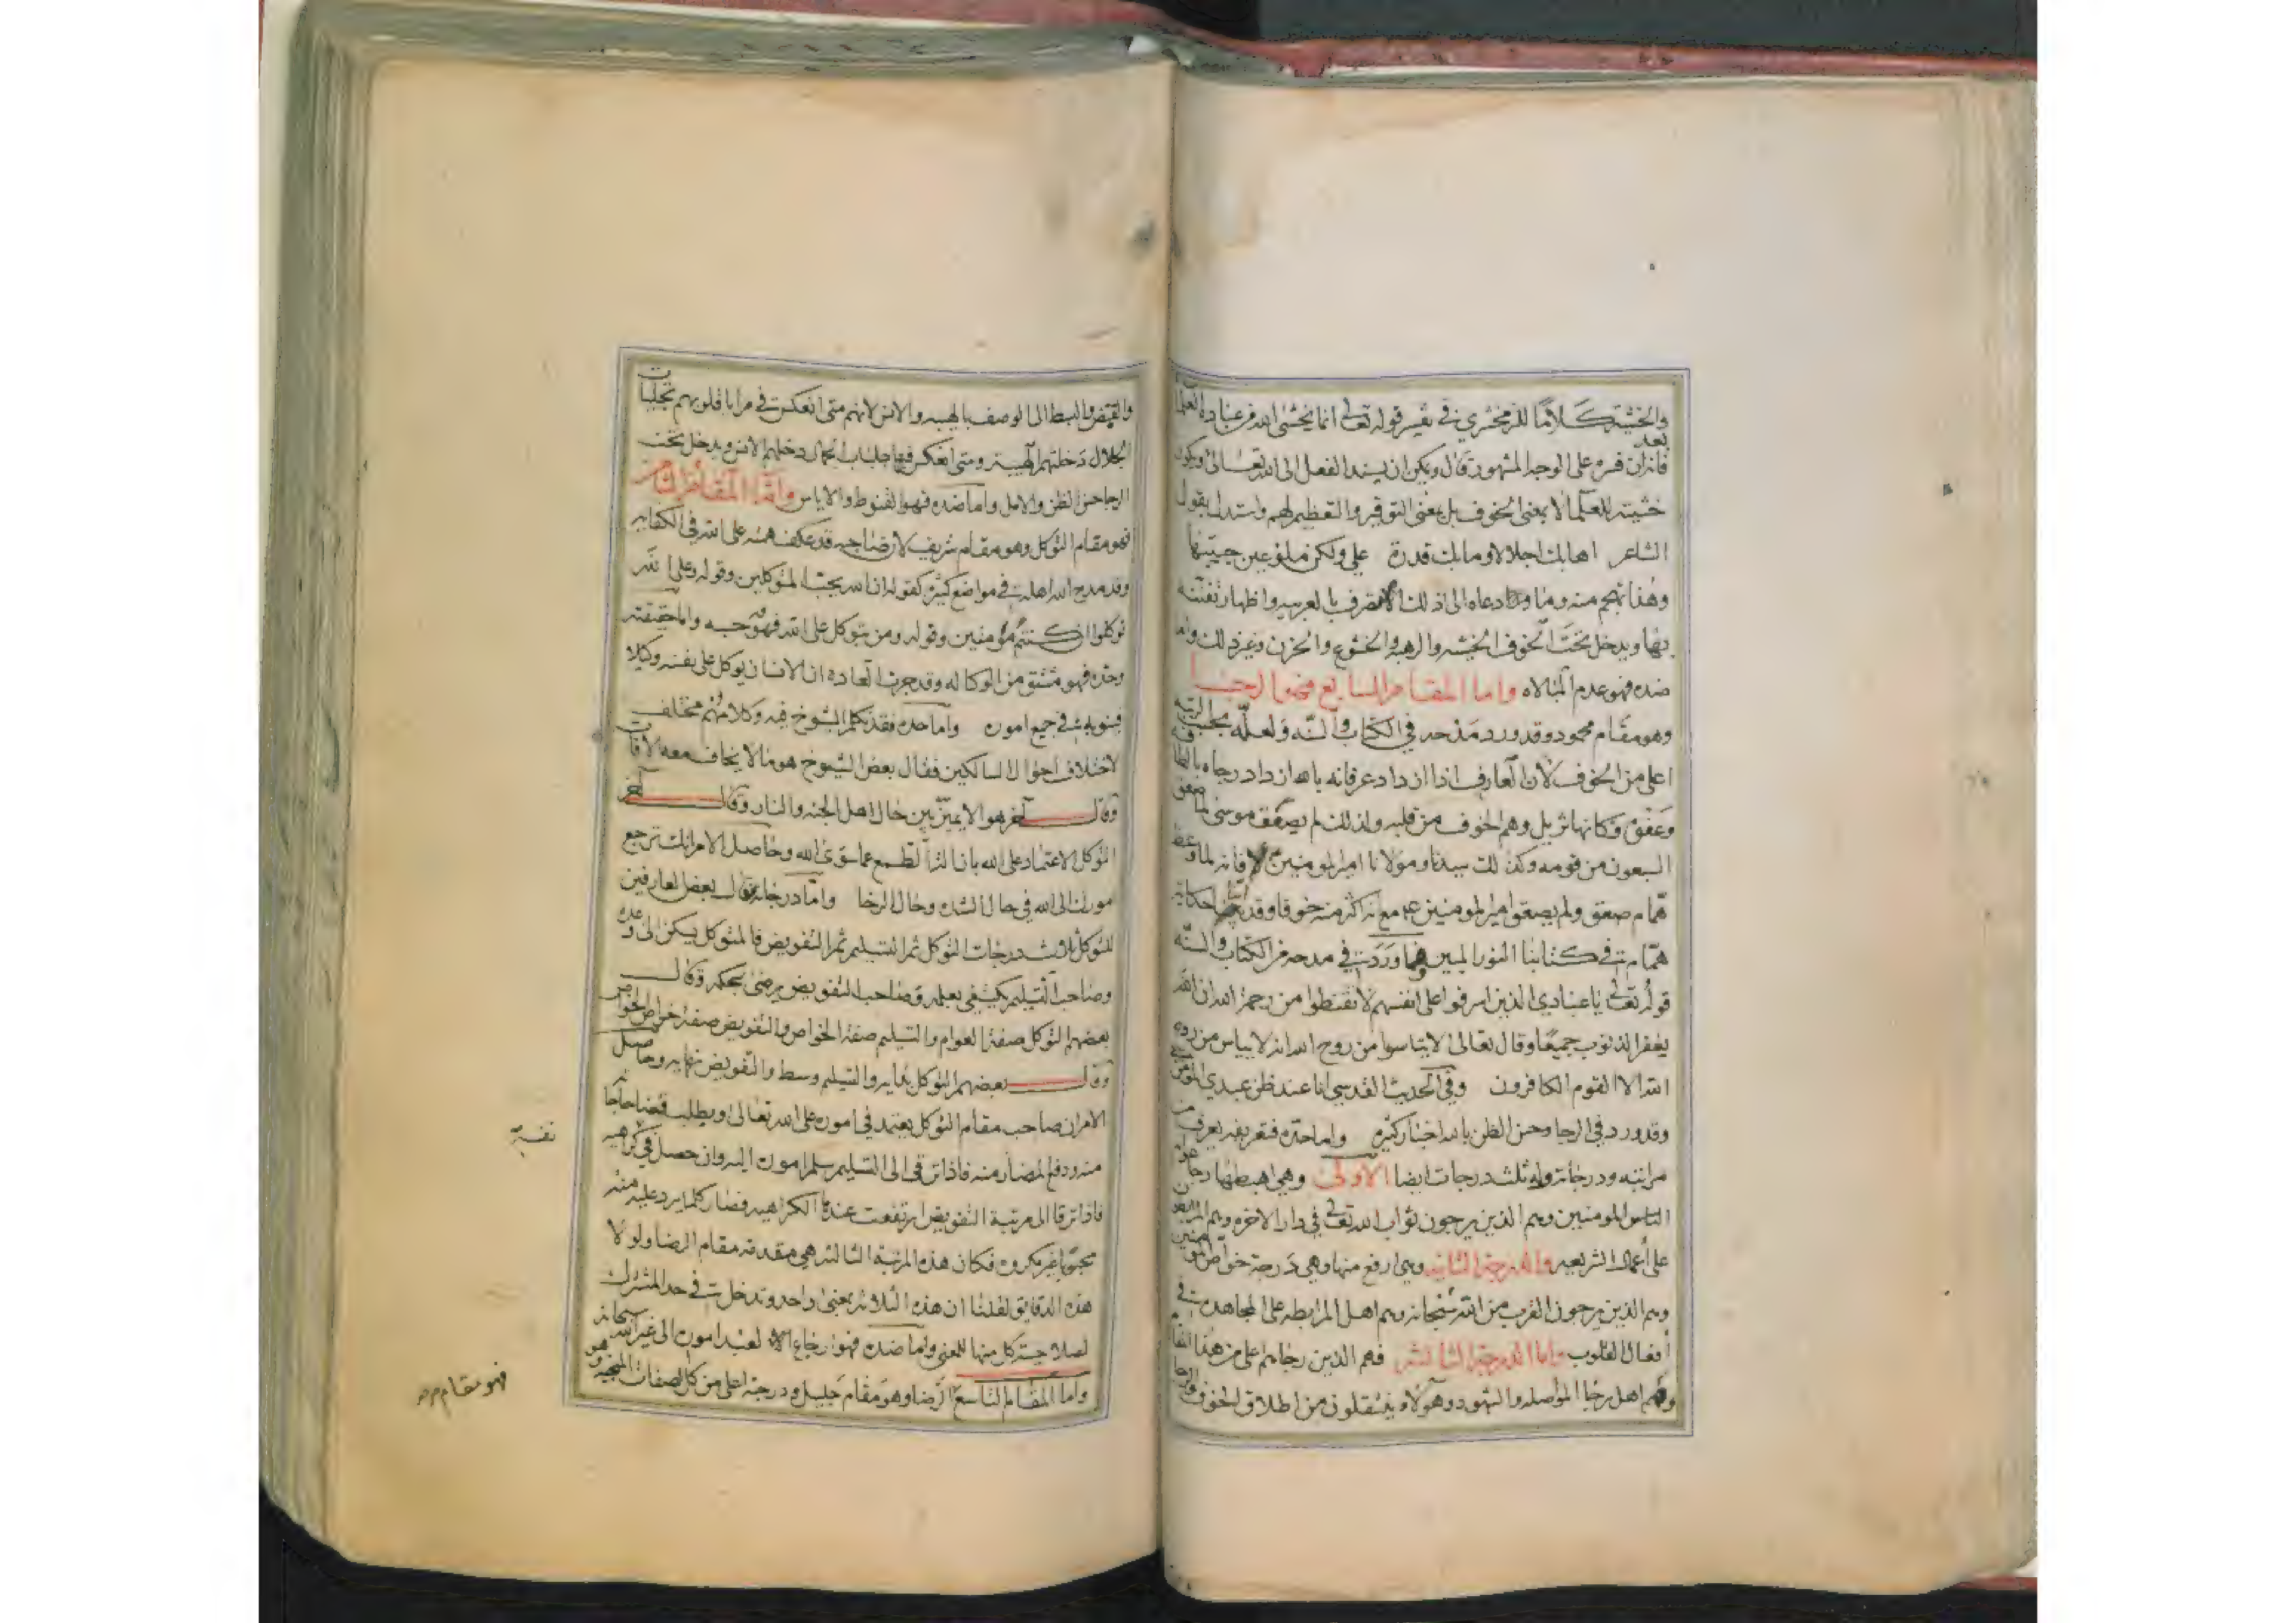 والخشية كلاما للزمخشري في تفسير قوله تعالى انما يخشى الله من عباده العلما
فانه بعد ان فسره على الوجه المشهور قال ويمكن ان يسند الفعل الى الله تعالى ويكون
خشيته للعلما لا بمعنى الخوف بل بمعنى التوقير والتعظيم لهم واستدل بقول
الشاعر اهابك اجلالا وما بك قدرة علي ولكن ملؤ عين حبيبها
وهذا منه وما دعاه الى ذلك الا تصرفه بالعربيه واظهار تفننه
بها ويدخل تحت الخوف الخشيه والرهبه والخشوع والحزن وغير ذلك واما
ضده فهو عدم المبالاه واما المقام السابع فهو الرجا
وهو مقام محمود وقد ورد مدحه في الكتاب والسنه ولعله بحسب الرتبه
اعلى من الخوف لان العارف اذا ازداد عرفانه بالله ازداد رجاه بالطافه
وعفوه وكانها تزيل وهم الخوف من قلبه ولذلك لم يصعق موسى لما صعق
السبعون من قومه وكذلك سيدنا ومولانا امير المومنين فانه لما وعظ
همام صعق ولم يصعق امير المومنين مع انه اكثر منه خوفا وقد حكاية
همام في كتابنا النور المبين فما وردت في مدحه من الكتاب والسنه
قوله تعالى يا عبادي الذين اسرفوا على انفسهم لا تقنطوا من رحمة الله ان الله
يغفر الذنوب جميعا وقال تعالى لا تياسوا من روح الله انه لا يياس من روح
الله الا القوم الكافرون وفي الحديث القدسي انا عند ظن عبدي المومن
وقد ورد في الرجا وحسن الظن بالله اخبار كثيره واما حده فتعريفه يعرف من
مراتبه ودرجاته وله ثلث درجات ايضا الاولى وهي اهبطها رجا
الناس المومنين وهم الذين يرجون ثواب الله تعالى في دار الاخره وهم
على اعمال الشريعه والدرجة الثانيه وهي ارفع منها وهي درجة خواص المومنين
وهم الذين يرجون القرب من الله سبحانه وهم اهل المرابطه على المجاهدات في
افعال القلوب واما الدرجة الثالثه فهم الذين رجاهم اعلى من هذا المقام
وهم اهل رجا المواصله والشهود وهولاء ينتقلون من اطلاق الخوف والرجا
والقبض والبسط الى الوصف بالهيبه والانس لانهم متى انعكست في مرايا قلوبهم تجليات
الجلال دخلتهم الهيبة ومتى انعكس فيها جلباب الجمال دخلهم الانس ويدخل تحت
الرجا حسن الظن والامل واما ضده فهو القنوط والاياس واما المقام الثامن
فهو مقام التوكل وهو مقام شريف لان صاحبه قد عكف همه على الله في
وقد مدح الله اهله في مواضع كثيره كقوله ان الله يحب المتوكلين وقوله وعلى الله
توكلوا ان كنتم مؤمنين وقوله ومن يتوكل على الله فهو حسبه واما حقيقته
وحده فهو مشتق من الوكاله وقد جرت العاده ان الانسان يوكل على نفسه وكيلا
فينوبه في جميع اموره واما حده فقد تكلم الشيوخ فيه وكلامهم مختلف
لاختلاف احوال السالكين فقال بعض الشيوخ هو ما لا يخاف معه الافات
وقال آخر هو الا يميز بين حال اهل الجنه والنار وقال آخر
التوكل الاعتماد على الله بانالة الطمع عما سوى الله وحاصل الامر انك ترجع
امورك الى الله في حال الشده وحال الرخا واما درجاته فقال بعض العارفين
للتوكل ثلاث درجات التوكل ثم التسليم ثم التفويض فالمتوكل يسكن الى وعده
وصاحب التسليم يكتفي بعلمه وصاحب التفويض يرضى بحكمه وقال
بعضهم التوكل صفة العوام والتسليم صفة الخواص والتفويض صفة خواص الخواص
وقال بعضهم التوكل بدايه والتسليم وسط والتفويض نهايه وحاصل
الامر ان صاحب مقام التوكل يعتمد في اموره على الله تعالى ويطلب قضا حاجاته
منه ودفع المضار منه فاذا ترقى الى التسليم سلم اموره اليه وان حصل في كراهيه
فاذا ترقا الى مرتبة التفويض ارتفعت عنده الكراهيه فصار كلما يرد عليه منه
محبوبا غير مكروه فكان هذه المرتبة الثالثه هي مقدمة مقام الرضا ولولا
هذه الدقايق لقلنا ان هذه الثلاثه بمعنى واحد وتدخل في حد المشترك
لصلاحية كل منها للمعنى واما ضده فهو ارجاع العبد اموره الى غير الله سبحانه
واما المقام التاسع الرضا وهو مقام جليل ودرجة اعلى من كل الصفات وهو
نفسه
فهو مقام